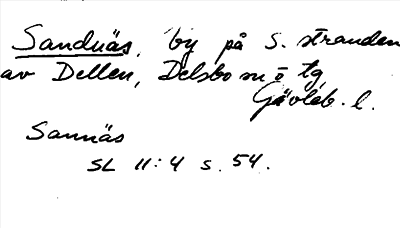 Sandnäs, by på S. stranden
av Dellen, Delsbo sn o tg,
Gävleb. l.
Sannäs
SL 11:4 s. 54.